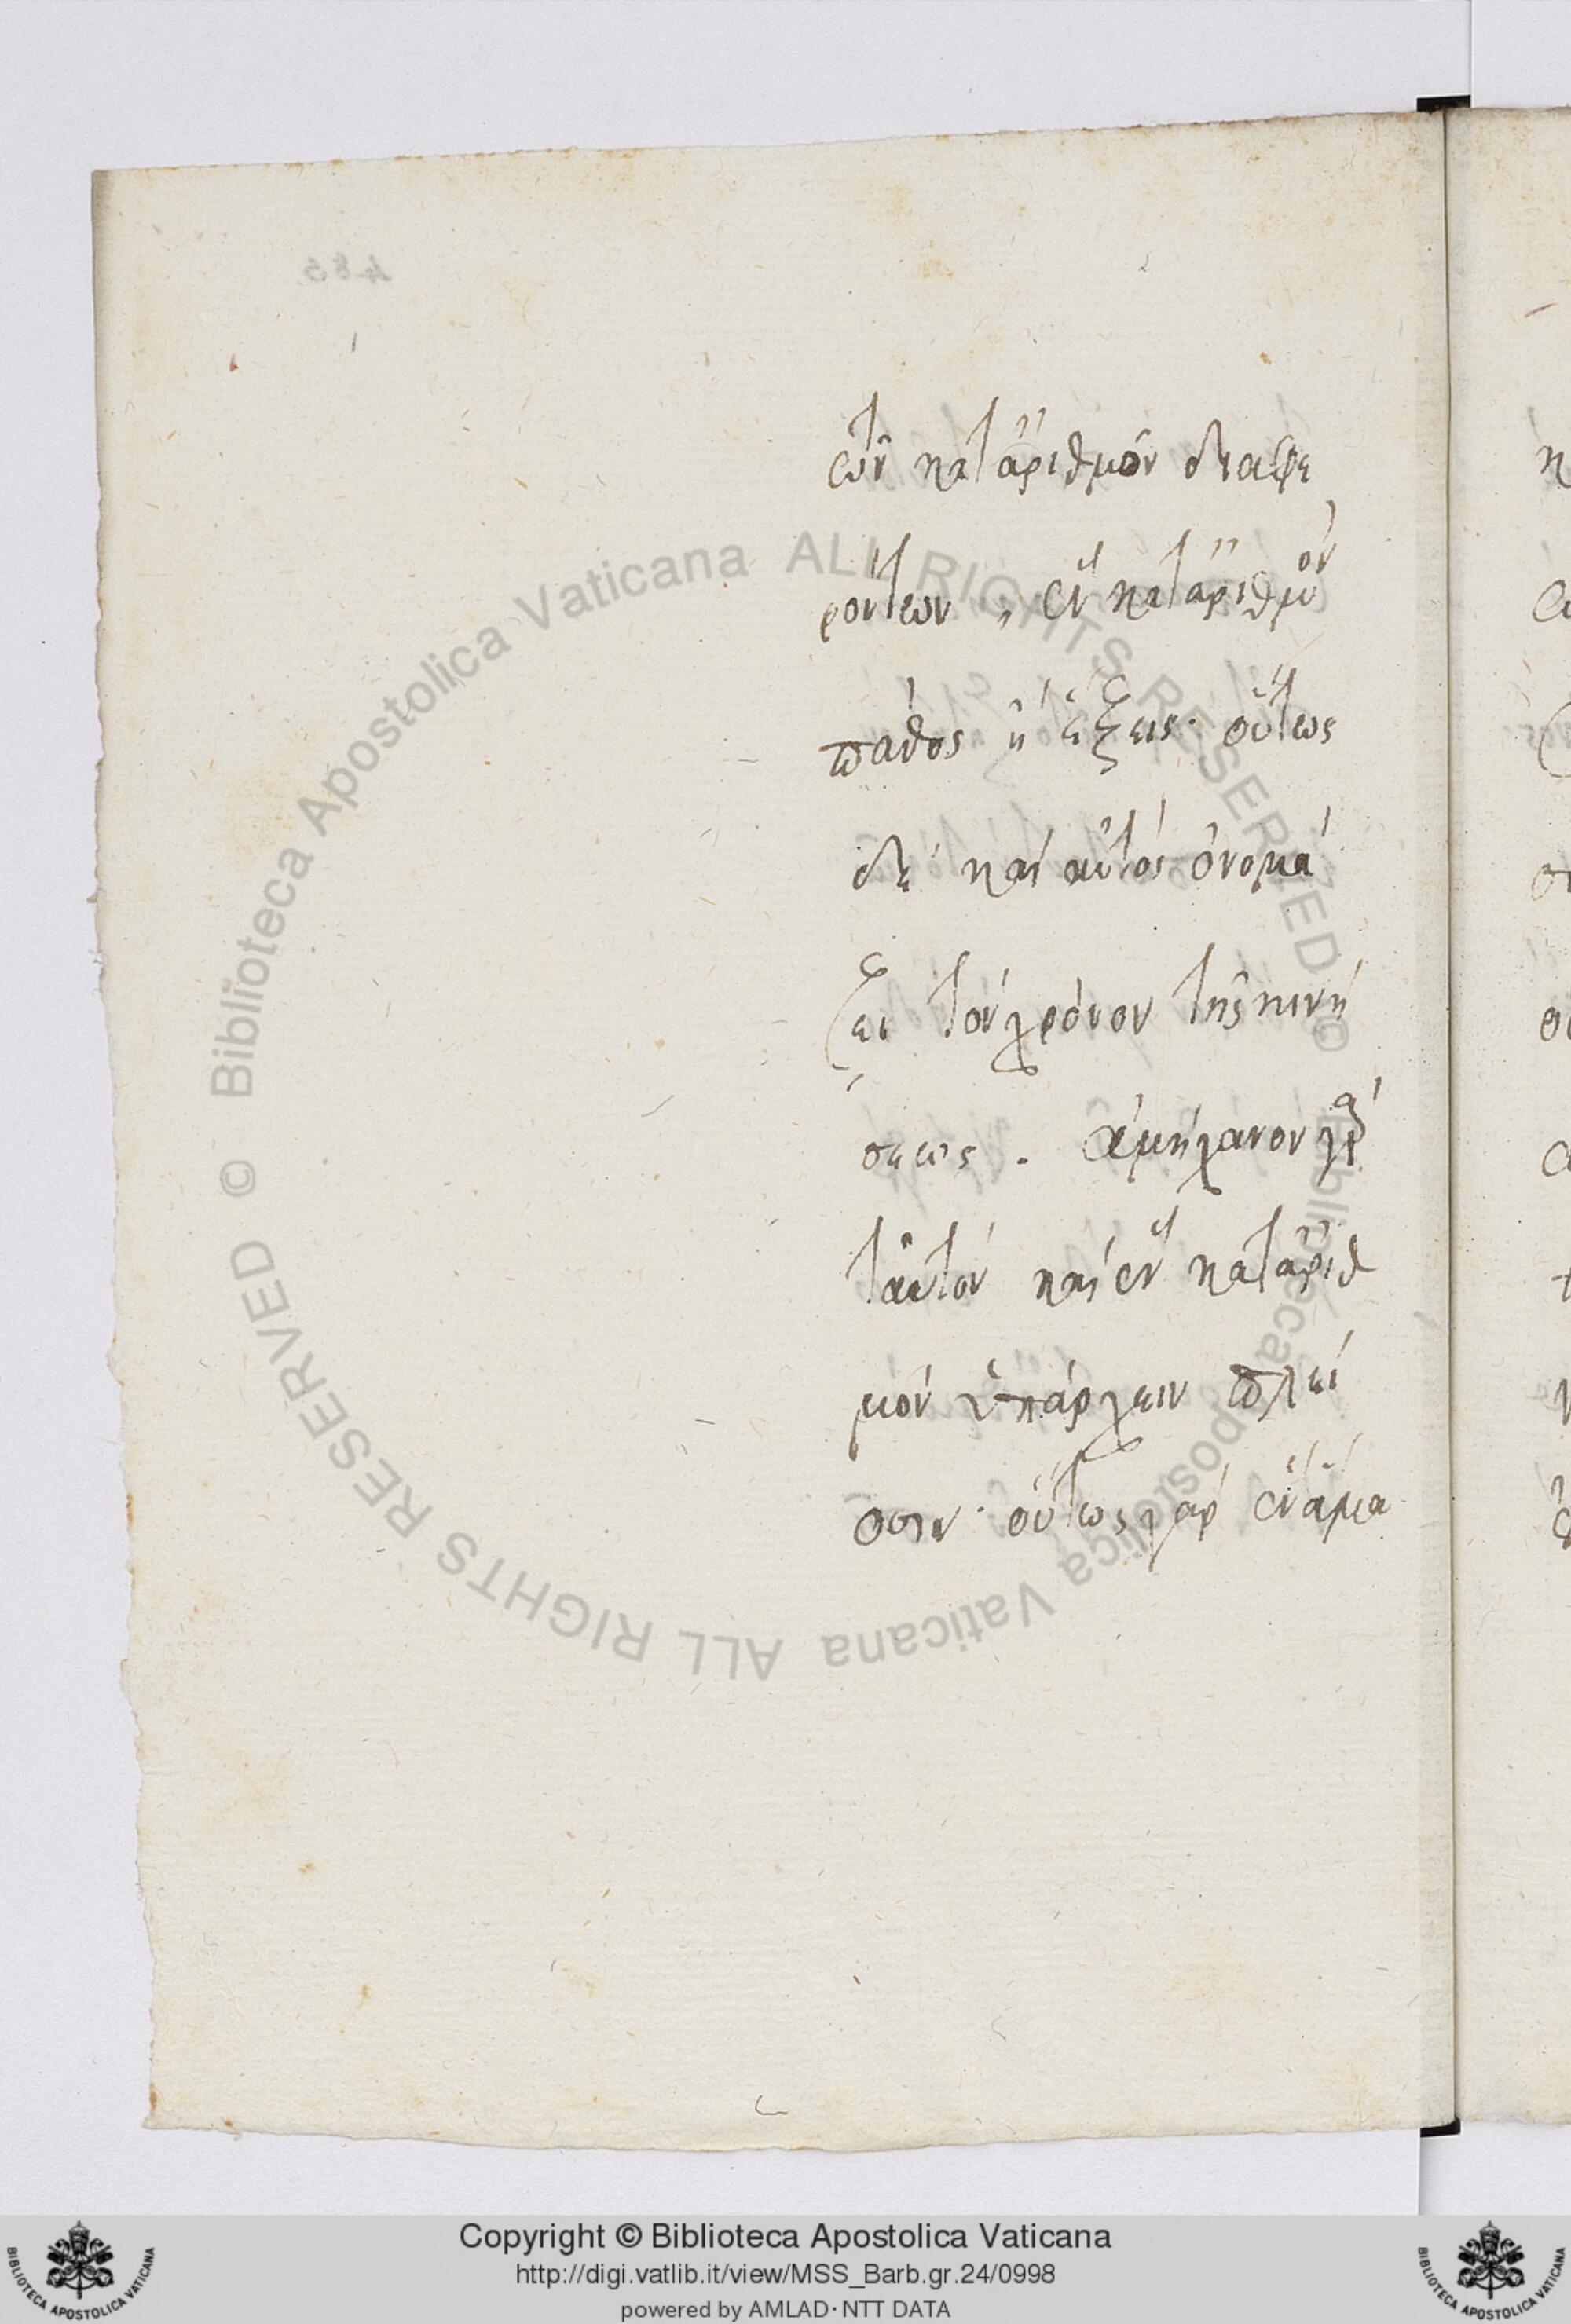 485
τῶν κατ ἀριθμόν διαφε
ρόντων, ἓν κατ ἀριθμὸν
πάθος ἢ ἕξεις· οὕτως
δὲ καὶ αὐτὸς ὀνομά
ζει τὸν χρόνον τῆς κινή
σεως. ἀμήχανον γὰρ
ταὐτὸν καὶ ἓν κατ ἀριθ
μὸν ὑπάρχειν πλεί
οσιν· οὕτως γὰρ ἓν ἅμα
Biblioteca Apostolica Vaticana ALL RIGHTS RESERVED © Biblioteca Apostolica Vaticana ALL RIGHTS RESERVED ©
Copyright © Biblioteca Apostolica Vaticana
http://digi.vatlib.it/view/MSS_Barb.gr.24/0998
powered by AMLAD·NTT DATA
BIBLIOTECA APOSTOLICA VATICANA
BIBLIOTECA APOSTOLICA VATICANA